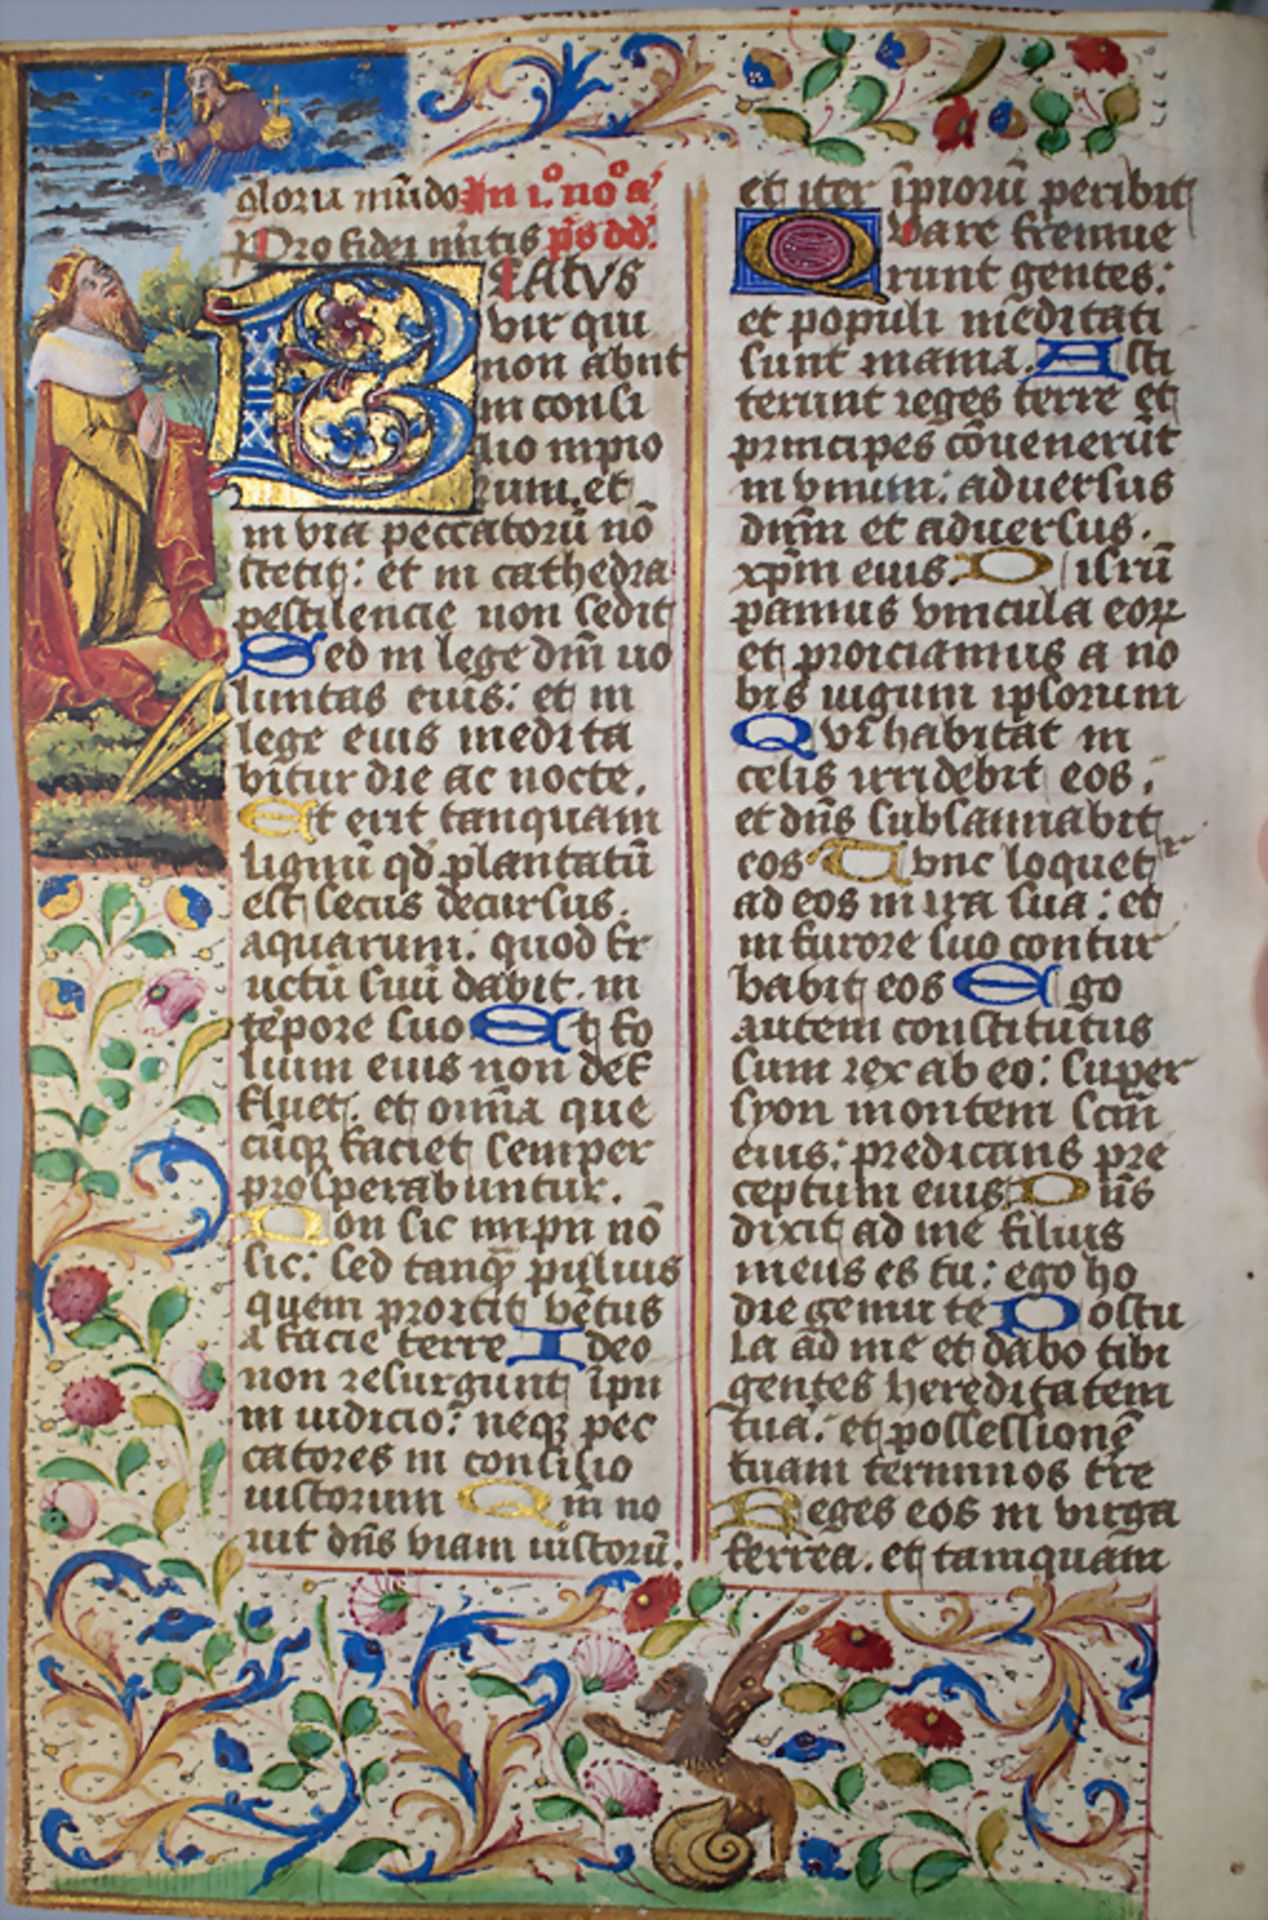 gloria mūdo In i.º noº a'
Pro fidei mitis ps dd.
BEATVS
vir qui
non abiit
in consi
lio inpio
rum. et
in via peccatorū nō
stetit: et in cathedra
pestilencie non sedit
Sed in lege dnī uo
luntas eius: et in
lege eius medita
bitur die ac nocte.
Et erit tanquam
lignū qd plantatū
est secus decursus.
aquarum. quod fr
uctū suū dabit. in
tēpore suo Et fo
lium eius non def
fluet. et omīa que
cūqꝫ faciet semper
prosperabuntur.
Non sic impii nō
sic: sed tanqꝫ pulius
quem proicit vētus
a facie terre Ideo
non resurgunt īpii
in iudicio: neqꝫ pec
catores in consilio
iustorum Qm no
uit dns̄ viam iustorū.
et iter īpiorū peribit
Quare fremue
runt gentes:
et populi meditati
sunt inania. Asti
terunt reges terre et
principes cōuenerūt
in vnum: aduersus
dnm̄ et aduersus.
xp̄m eius. Disrū
pamus vincula eoꝝ
et proiciamus a no
bis iugum ipsorum
Qui habitat in
celis irridebit eos.
et dns̄ subsannabit
eos Tunc loquet
ad eos in ira sua: et
in furore suo contur
babit eos Ego
autem constitutus
sum rex ab eo: super
syon montem scm̄
eius: predicans pre
ceptum eius Dns̄
dixit ad me filius
meus es tu: ego ho
die genui te Postu
la ad me et dabo tibi
gentes hereditatem
tuā: et possessionē
tuam terminos tre
Reges eos in virga
ferrea. et tamquam